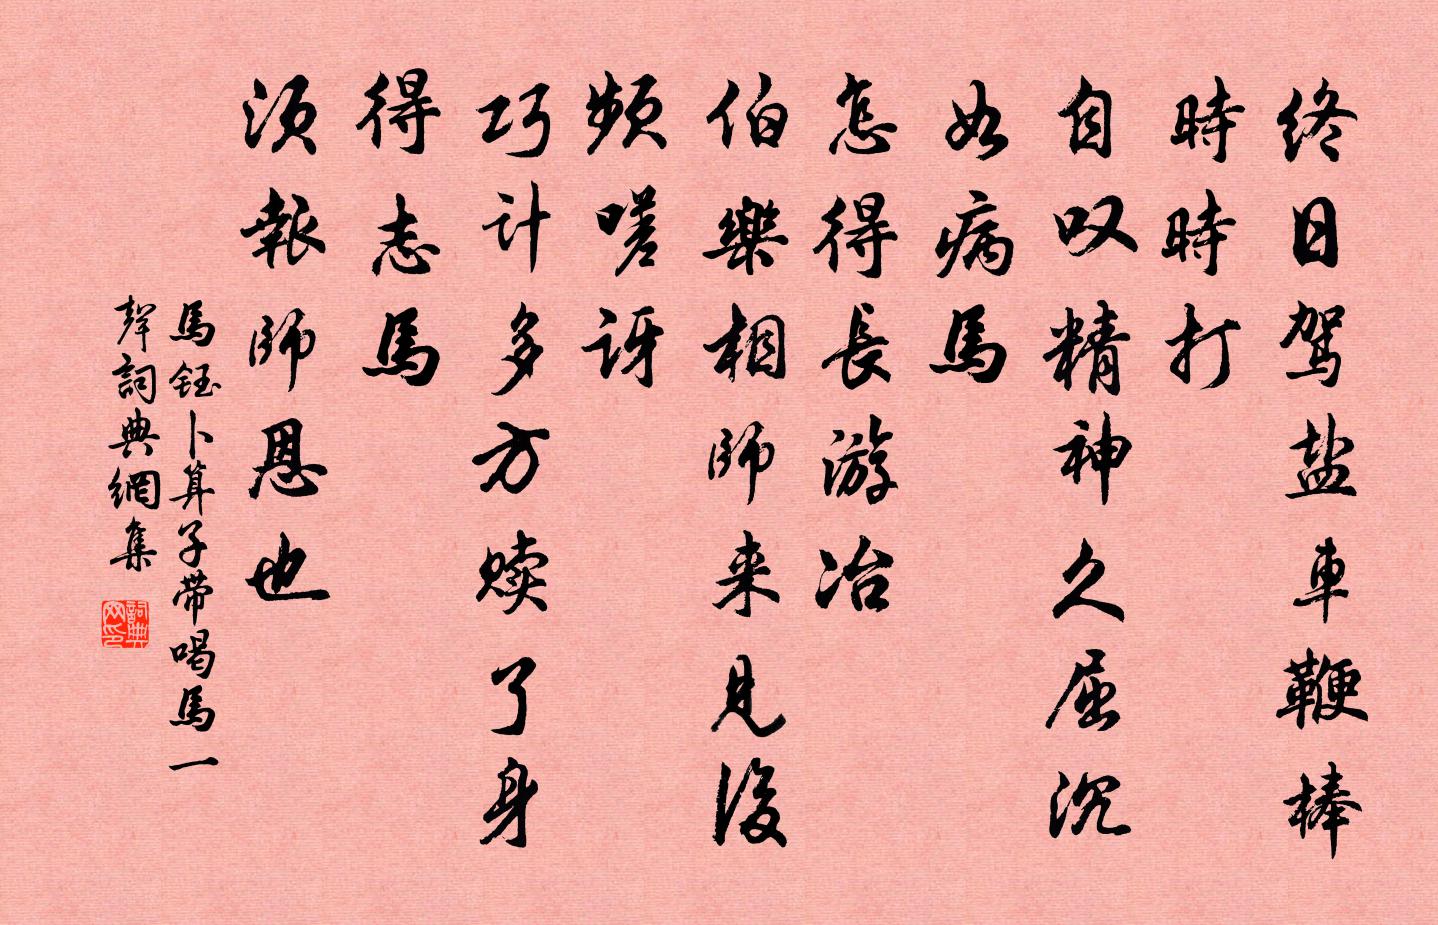 终日驾盐車鞭棒
時時打
自叹精神久屈沉
如病馬
怎得長游冶
伯樂相師来見後
頻嗟讶
巧计多方赎了身
得志馬
須報師恩也
馬鈺卜算子带喝馬一
聲詞典網集
詞典
网印